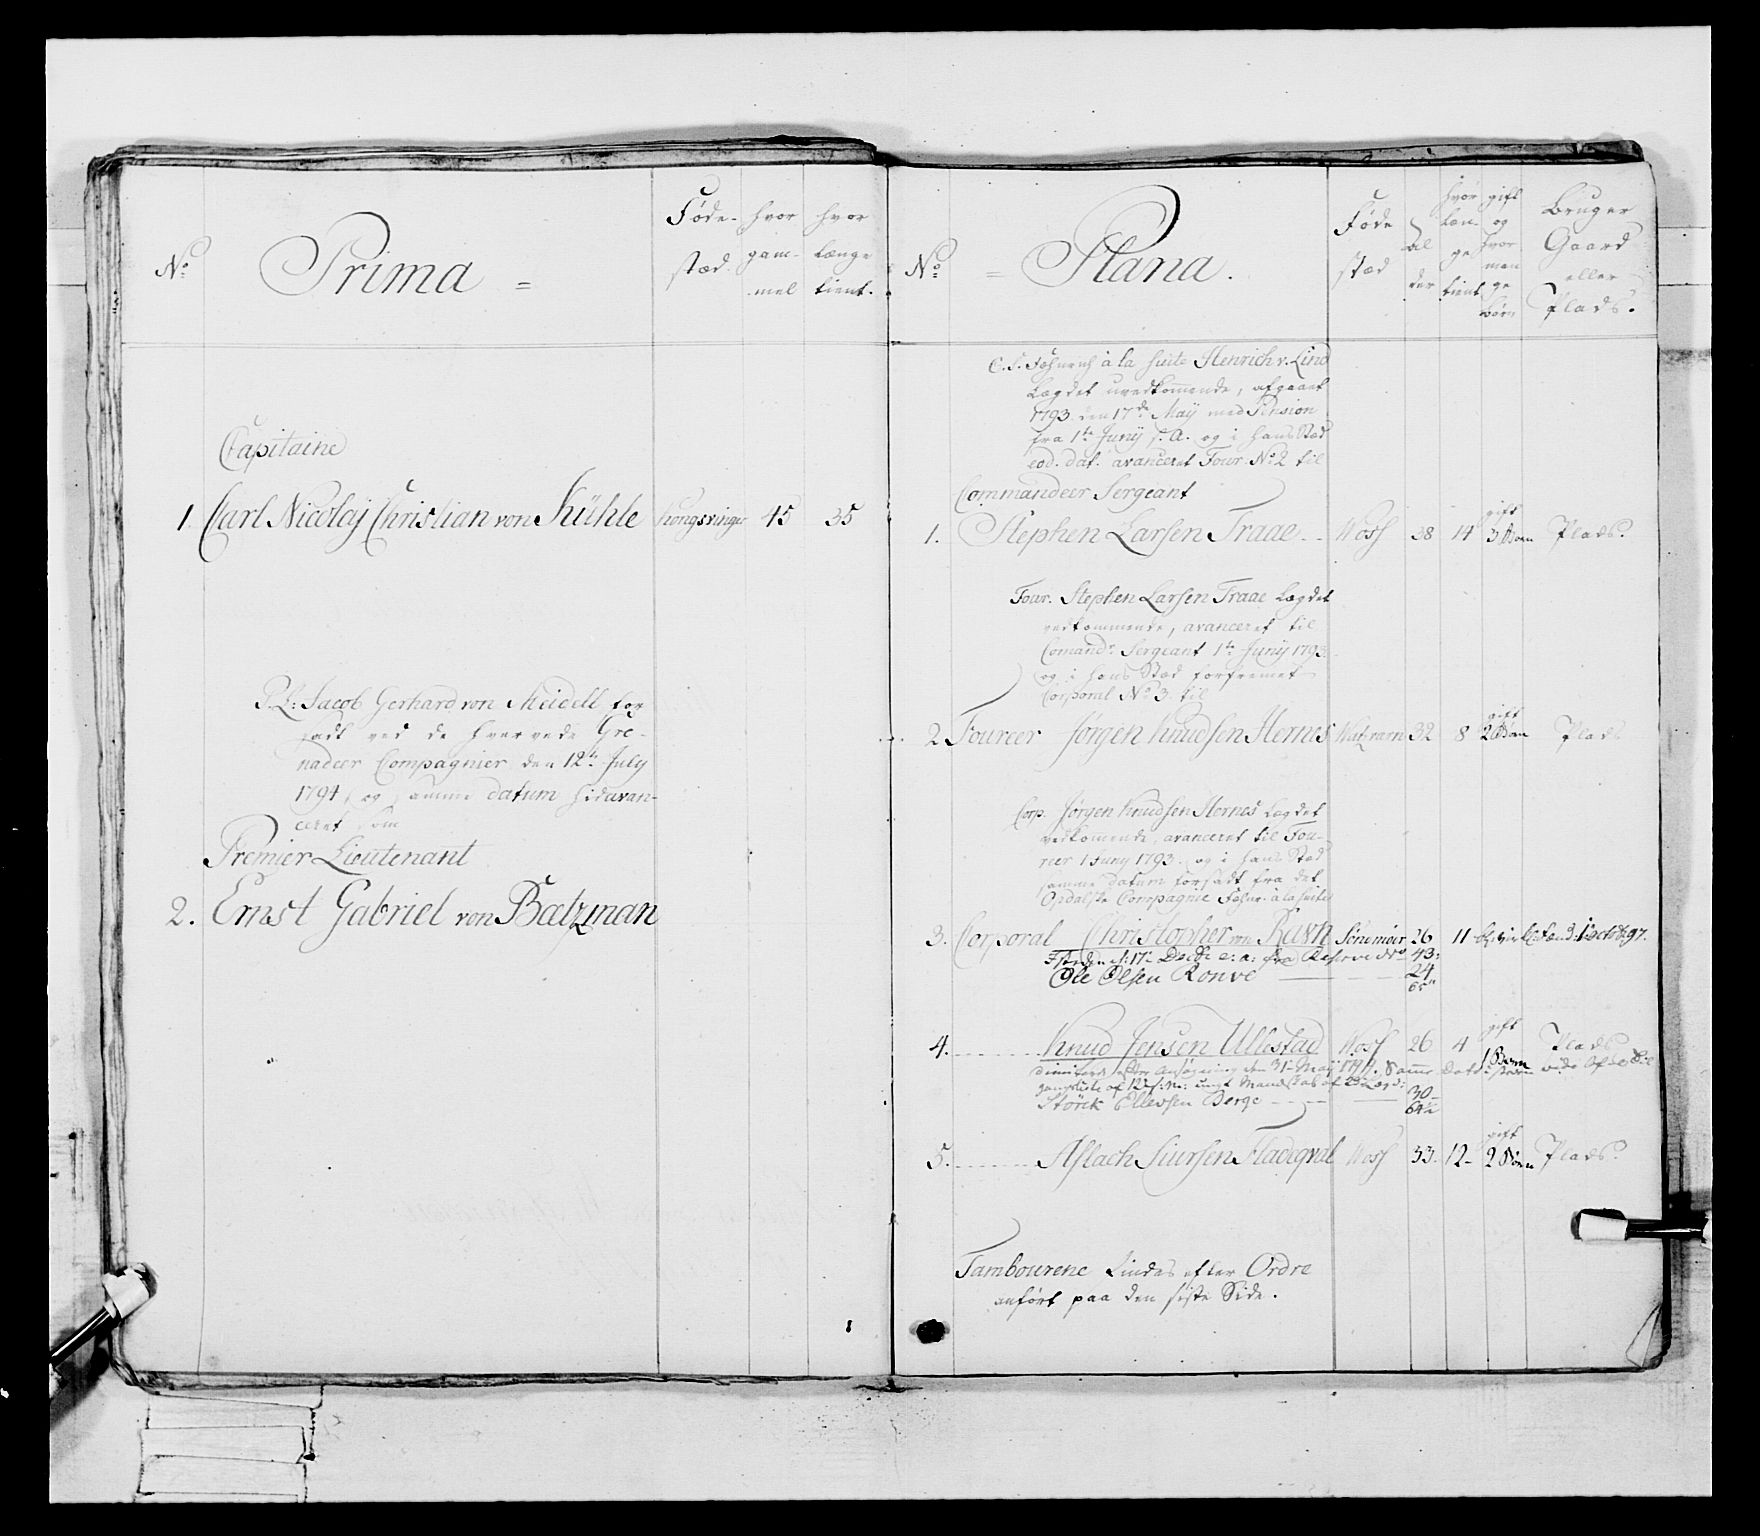 No
Prima =
Føde-
stæd
hvor
gam-
mel
hvor
længe
tient.
Capitaine
1. Carl Nicolaj Christian von Kühle Kongsvinger 45 35
P.L: Jacob Gerhard von Meidell for-
sadt ved de hvervede Gre-
nadeer Compagnier den 12te July
1794, og samme datum hidavan-
ceret som
Premier Lieutenant
2. Ernst Gabriel von Bætzman
No
= Plana.
Føde
stæd
Al
der
hvor
læn-
ge
tient
gift
og
hvor
man
ge
børn
Bruger
Gaard
eller
Plads.
C. S. Fohnrich à la Suite Henrich v. Lind
Lægdet uvedkommende, afgaaet
1793. den 17de Maij med Pension
fra 1te Junij s. A. og i hans Stæd
eod. dat. avanceret Four. No 2 til
Commandeer Sergeant
1. Stephen Larsen Traae Woss 38 14 gift 3 Børn Plads.
Four. Stephen Larsen Traae Lægdet
vedkommende, avanceret til
Comandr Sergeant 1te Junij 1793.
og i hans Stæd forfremet
Corporal No 3. til
2 Foureer Jørgen Knudsen Hernes 32 8 gift 2 Børn Plads
Corp. Jørgen Knudsen Hernes Lægdet
vedkomende, avanceret til Fou-
reer 1 Juny 1793. og i hans Stæd
samme datum forsadt fra det
Opdalske Compagnie Fohnr. à la Suite
3. Corporal Christopher von Ravn Søndmøer 26 11
fra Reserve No 43:
Ole Olsen Ronve 24
65"
4. Knud Jensen Ullestad Woss 26 4 gift 1 Børn Plads
dimiteret efter Ansøgning den 31te Maij
ungt Mandskab af
Størck Ellevsen Berge 30
64½
5. Aslach Siursen Fladeqval Woss 33. 12- gift 2 Børn Plads.
Tambourene Lindes efter Ordre
anført paa den siste Side.